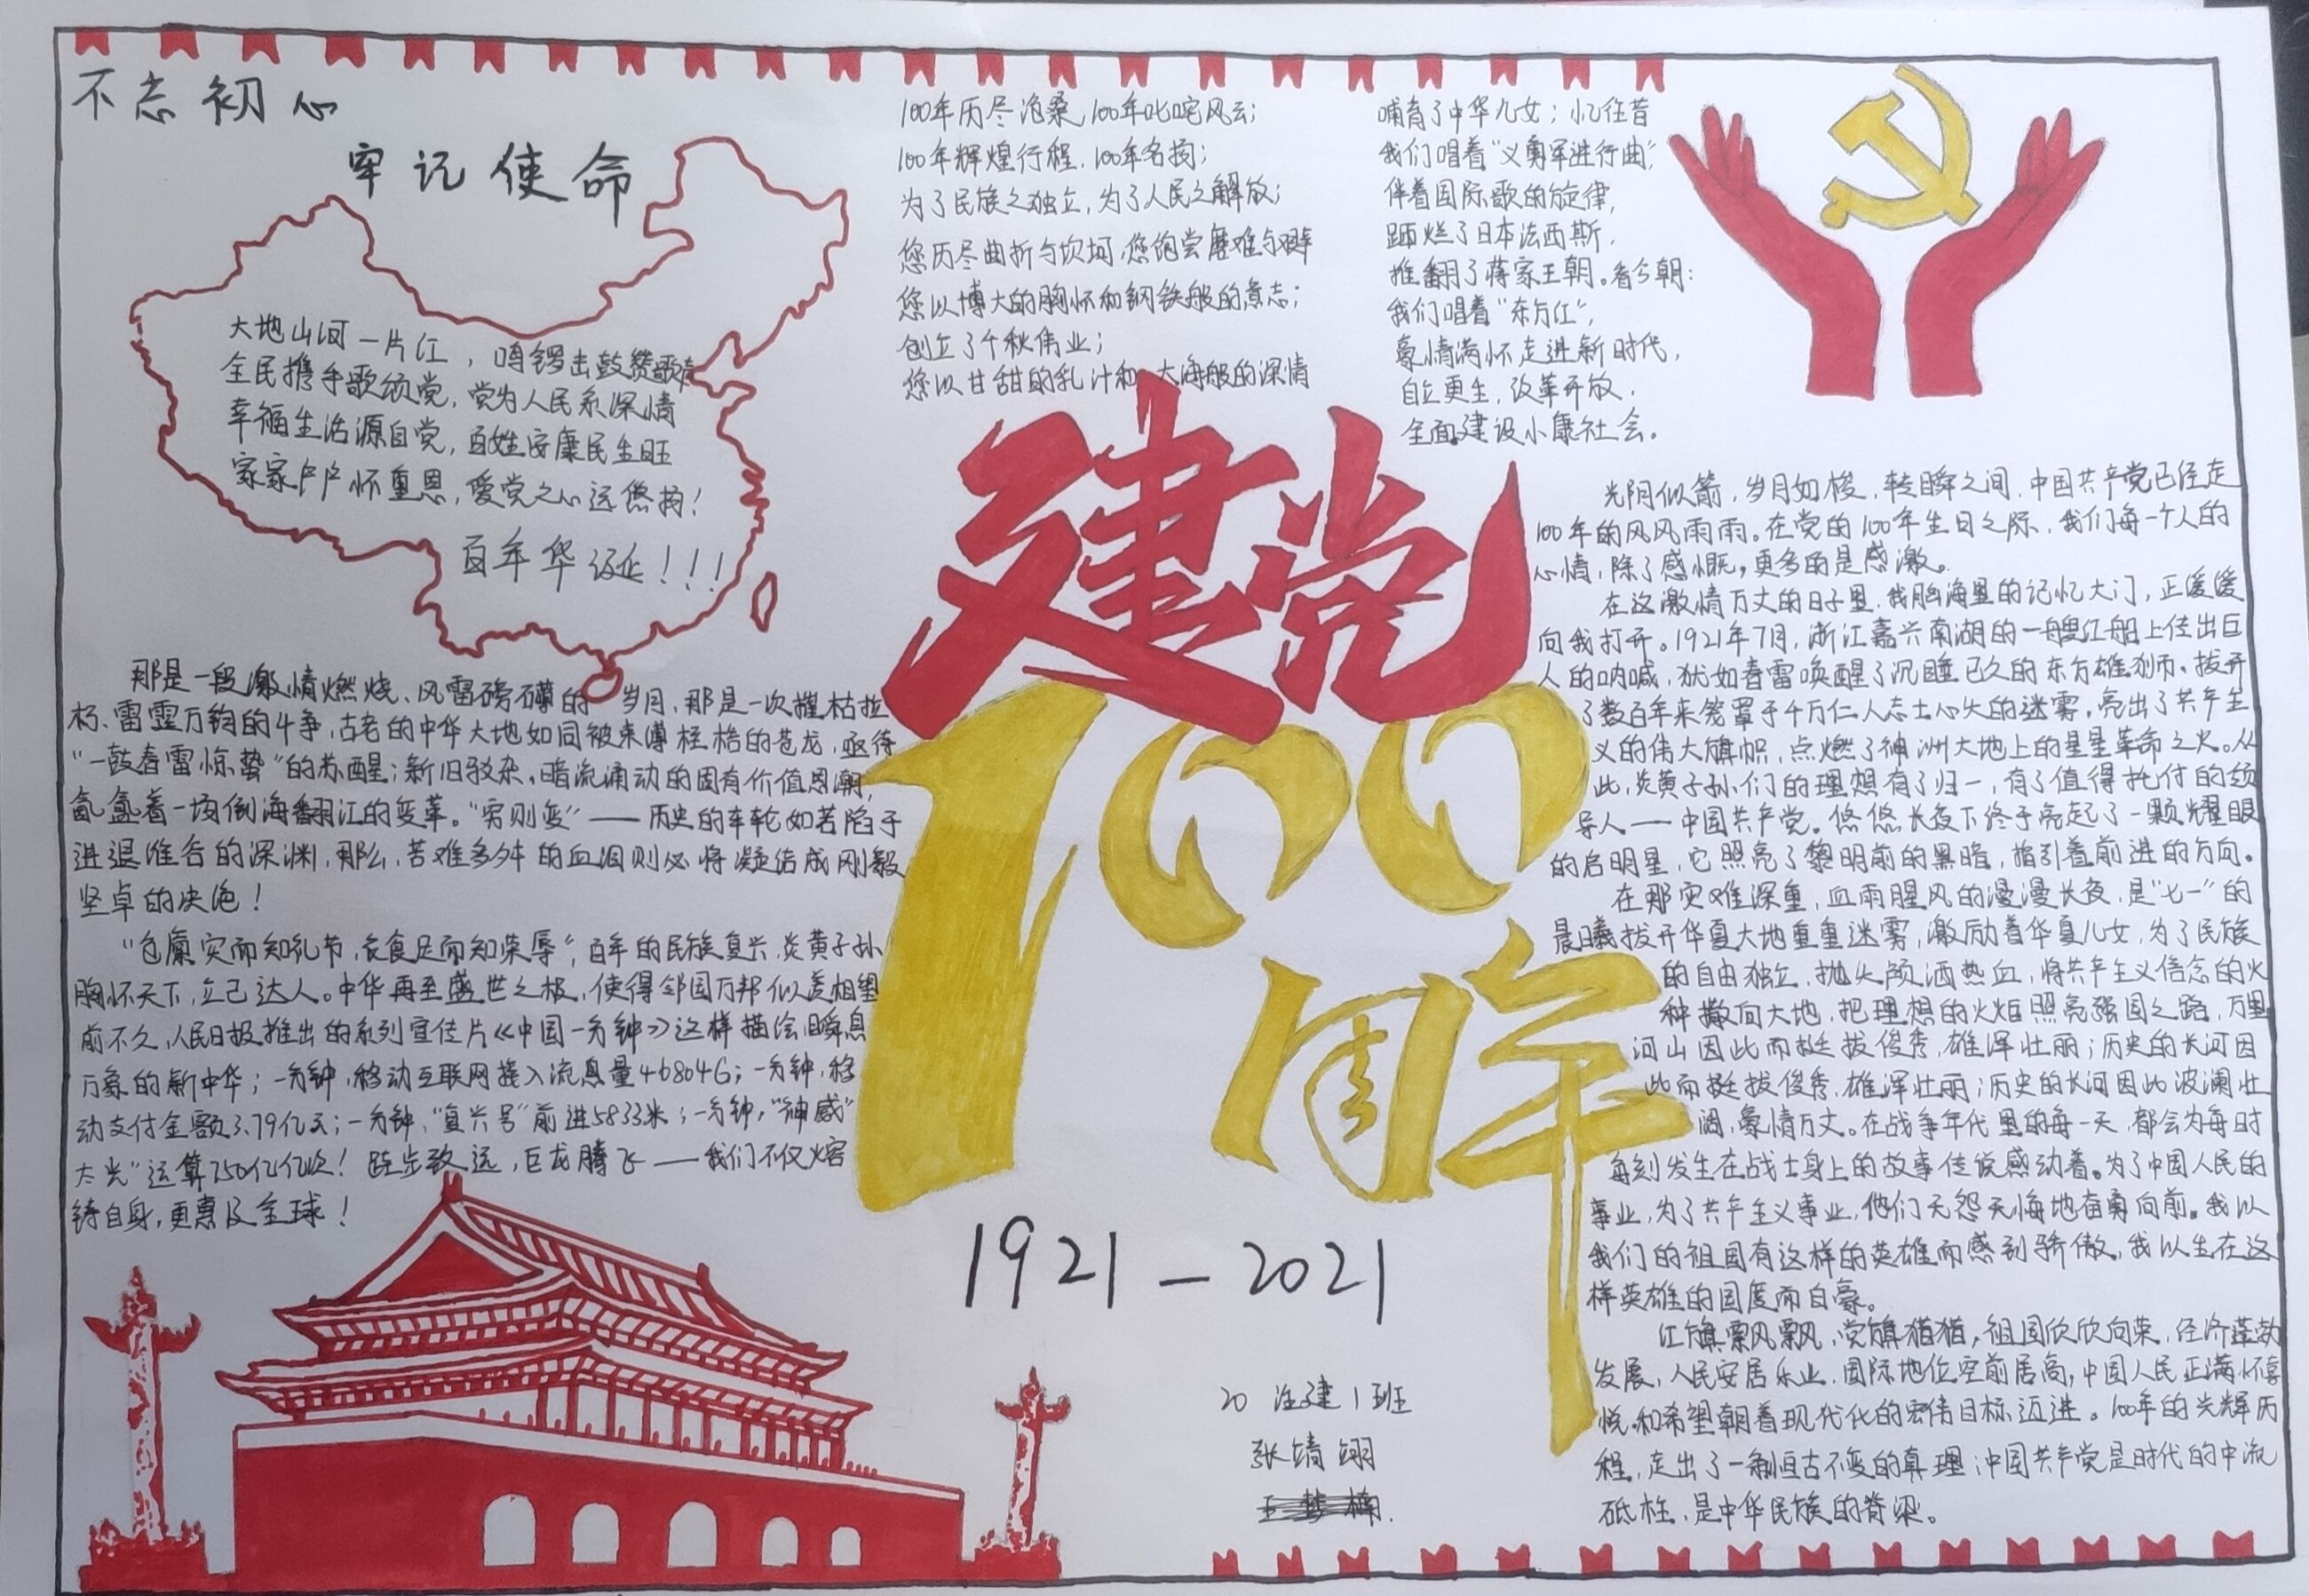 不忘初心
牢记使命
大地山河一片红，鸣锣击鼓赞歌声
全民携手歌颂党，党为人民系深情
幸福生活源自党，百姓安康民生旺
家家户户怀重恩，爱党之心远悠扬！
百年华诞！！！
那是一段激情燃烧、风雷磅礴的岁月，那是一次摧枯拉
朽、雷霆万钧的斗争，古老的中华大地如同被束缚桎梏的苍龙，亟待
“一鼓春雷惊蛰”的苏醒；新旧驳杂、暗流涌动的固有价值思潮，
氤氲着一场倒海翻江的变革。“穷则变”——历史的车轮如若陷于
进退维谷的深渊，那么，苦难多舛的血泪则必将凝结成刚毅
坚卓的决绝！
“仓廪实而知礼节，衣食足而知荣辱”，百年的民族复兴，炎黄子孙
胸怀天下，立己达人。中华再至盛世之极，使得邻国万邦似羡相望
前不久，人民日报推出的系列宣传片《中国一分钟》这样描绘瞬息
万象的新中华；一分钟，移动互联网接入流息量46804G；一分钟，移
动支付金额3.79亿元；一分钟，“复兴号”前进5833米；一分钟，“神威”
太光”运算750亿亿次！跬步致远，巨龙腾飞——我们不仅熔
铸自身，更惠及全球！
100年历尽沧桑，100年叱咤风云；
100年辉煌行程，100年名扬；
为了民族之独立，为了人民之解放；
您历尽曲折与坎坷，您饱尝磨难与艰辛
您以博大的胸怀和钢铁般的意志；
创立了千秋伟业；
您以甘甜的乳汁和大海般的深情
哺育了中华儿女；忆往昔
我们唱着“义勇军进行曲”，
伴着国际歌的旋律，
砸烂了日本法西斯，
推翻了蒋家王朝。看今朝：
我们唱着“东方红”，
豪情满怀走进新时代，
自立更生，改革开放，
全面建设小康社会。
建党
100
周年
1921—2021
20 注建1班
光阴似箭，岁月如梭，转瞬之间，中国共产党已经走
100年的风风雨雨。在党的100年生日之际，我们每一个人的
心情，除了感慨，更多的是感激。
在这激情万丈的日子里，我脑海里的记忆大门，正缓缓
向我打开。1921年7月，浙江嘉兴南湖的一艘红船上传出巨
人的呐喊，犹如春雷唤醒了沉睡已久的东方雄狮。拔开
了数百年来笼罩于千万仁人志士心头的迷雾，亮出了共产主
义的伟大旗帜，点燃了神洲大地上的星星革命之火。从
此，炎黄子孙们的理想有了归一，有了值得托付的领
导人——中国共产党。悠悠长夜下终于亮起了一颗耀眼
的启明星，它照亮了黎明前的黑暗，指引着前进的方向。
在那灾难深重，血雨腥风的漫漫长夜，是“七一”的
晨曦拔开华夏大地重重迷雾，激励着华夏儿女，为了民族
的自由独立，抛头颅洒热血，将共产主义信念的火
种撒向大地，把理想的火炬照亮强国之路，万里
河山因此而挺拔俊秀，雄浑壮丽；历史的长河因
此而挺拔俊秀，雄浑壮丽；历史的长河因此波澜壮
阔，豪情万丈。在战争年代里的每一天，都会为每时
每刻发生在战士身上的故事传说感动着。为了中国人民的
事业，为了共产主义事业，他们无怨无悔地奋勇向前。我以
我们的祖国有这样的英雄而感到骄傲，我以生在这
样英雄的国度而自豪。
红旗飘飘，党旗猎猎，祖国欣欣向荣，经济蓬勃
发展，人民安居乐业，国际地位空前居高，中国人民正满怀喜
悦和希望朝着现代化的宏伟目标迈进。100年的光辉历
程，走出了一条恒古不变的真理：中国共产党是时代的中流
砥柱，是中华民族的脊梁。